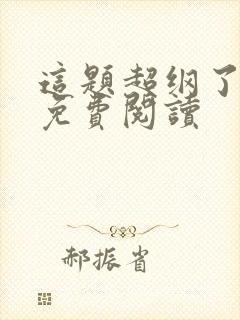 這題超纲了
免費閱讀
郝振省